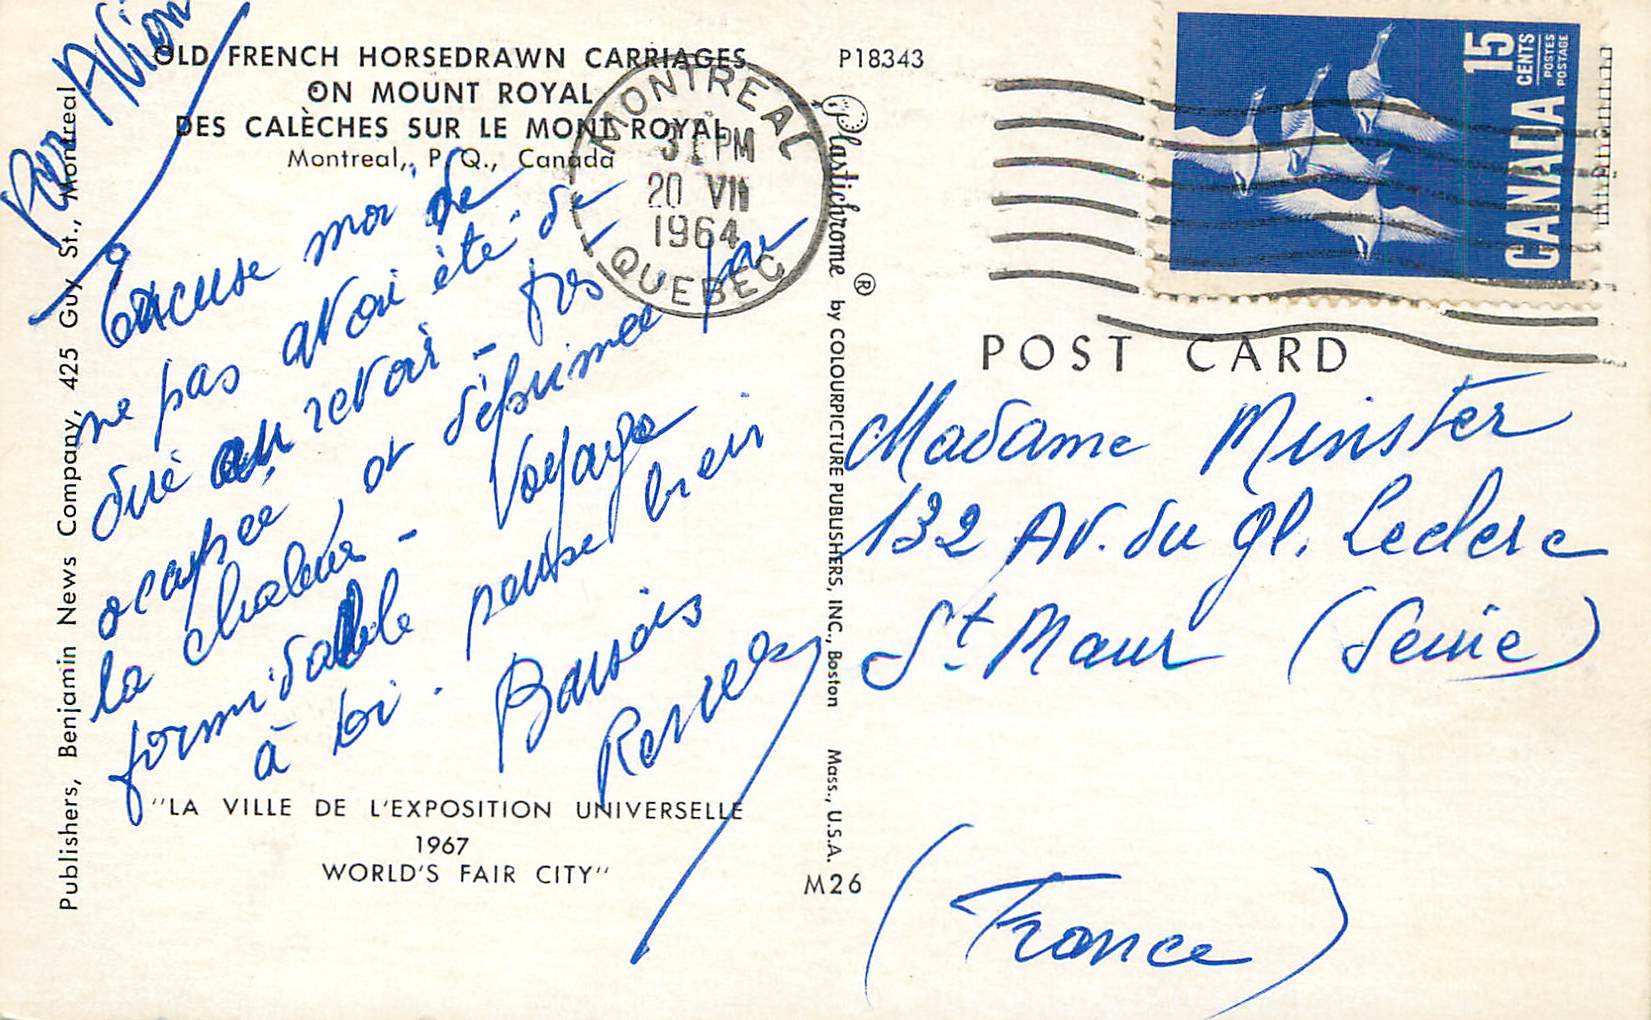 Par Avion
OLD FRENCH HORSEDRAWN CARRIAGES
ON MOUNT ROYAL
DES CALÈCHES SUR LE MONT ROYAL
Montreal,, P. Q., Canada
P18343
MONTREAL
PM
20 VII
1964
QUEBEC
CANADA 15 CENTS
POSTES
POSTAGE
Excuse moi de
ne pas avoir été de
au revoir - très
occupée, et déprimée par
la chaleur - Voyage
formidable pense bien
à toi. Baisers
"LA VILLE DE L'EXPOSITION UNIVERSELLE
1967
WORLD'S FAIR CITY"
M26
Publishers, Benjamin News Company, 425 Guy St., Montreal
Plastichrome ® by COLOURPICTURE PUBLISHERS, INC., Boston Mass., U.S.A.
POST CARD
Madame Minster
132 Av. du Gl. Leclerc
St. Maur (Seine)
(France)